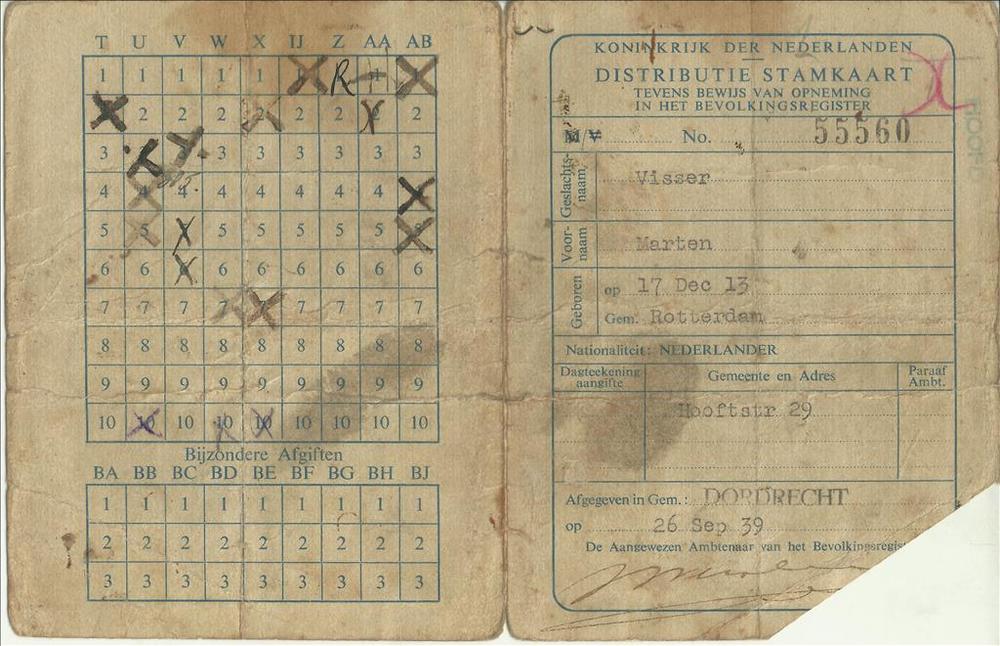 T U V W X IJ Z AA AB
1 1 1 1 1 R 1
2 2 2 2 2 2 2 2
3 3 3 3 3 3 3 3
4 4 4 4 4 4 4 4
5 5 5 5 5 5 5 5
6 6 6 6 6 6 6 6 6
7 7 7 7 7 7 7 7 7
8 8 8 8 8 8 8 8 8
9 9 9 9 9 9 9 9 9
10 10 10 10 10 10 10 10 10
Bijzondere Afgiften
BA BB BC BD BE BF BG BH BJ
1 1 1 1 1 1 1 1 1
2 2 2 2 2 2 2 2 2
3 3 3 3 3 3 3 3 3
KONINKRIJK DER NEDERLANDEN
DISTRIBUTIE STAMKAART
TEVENS BEWIJS VAN OPNEMING
IN HET BEVOLKINGSREGISTER
M/V No. 55560
Geslachts-
naam Visser
Voor-
naam Marten
Geboren op 17 Dec 13
Gem. Rotterdam
Nationaliteit: NEDERLANDER
Dagteekening
aangifte Gemeente en Adres Paraaf
Ambt.
Hooftstr 29
Afgegeven in Gem.: DORDRECHT
op 26 Sep 39
De Aangewezen Ambtenaar van het